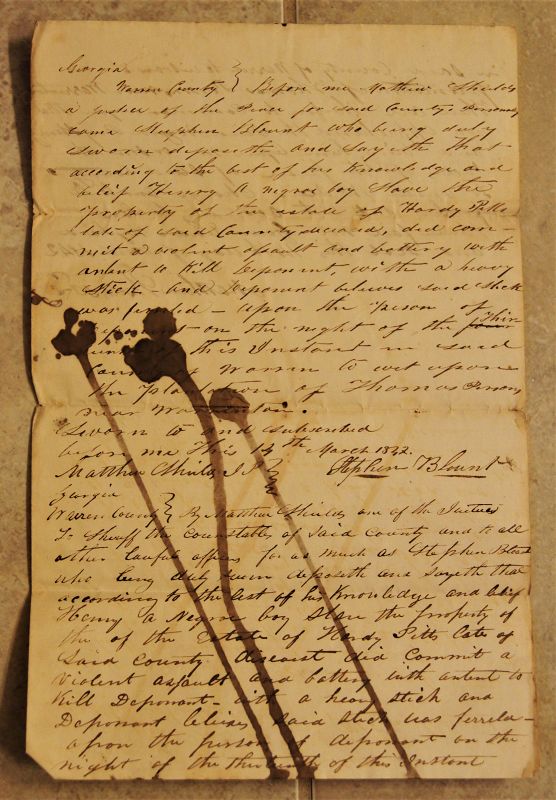 Georgia
Warren County } Before me Mathew Shields
a justice of the Peace for said County. Personaly
came Stephen Blount who being duly
sworn deposeth and sayeth that
according to the best of his knowledge and
belief Henry a negroe boy slave the
property of the estate of Hardy Pitts
late of said County deceased, did com-
mit a violent assault and battery with
intent to kill deponent, with a heavy
stick - and deponent believes said stick
was - upon the person of
on the night of the
this Instant in said
Warren to wit upon
the Plantation of Thomas
near
Sworn to and subscribed
before me this 14th March 1842.
Matthew Shields J P Stephen Blount
Georgia
Warren County } By Matthew Shields one of the Justices
To Sheriff the Counstables of said County and to all
other lawful officers for as much as Stephen Blount
who being duly sworn deposeth and sayeth that
according to the best of his knowledge and belief
Henry a Negroe boy Slave the property of
the of the Estate of Hardy Pitts late of
said County did commit a
violent assault and battery with entent to
kill Deponant - with a heavy stick and
Deponant said stick was
upon the person of deponant on the
night of the thirteenth of this Instant